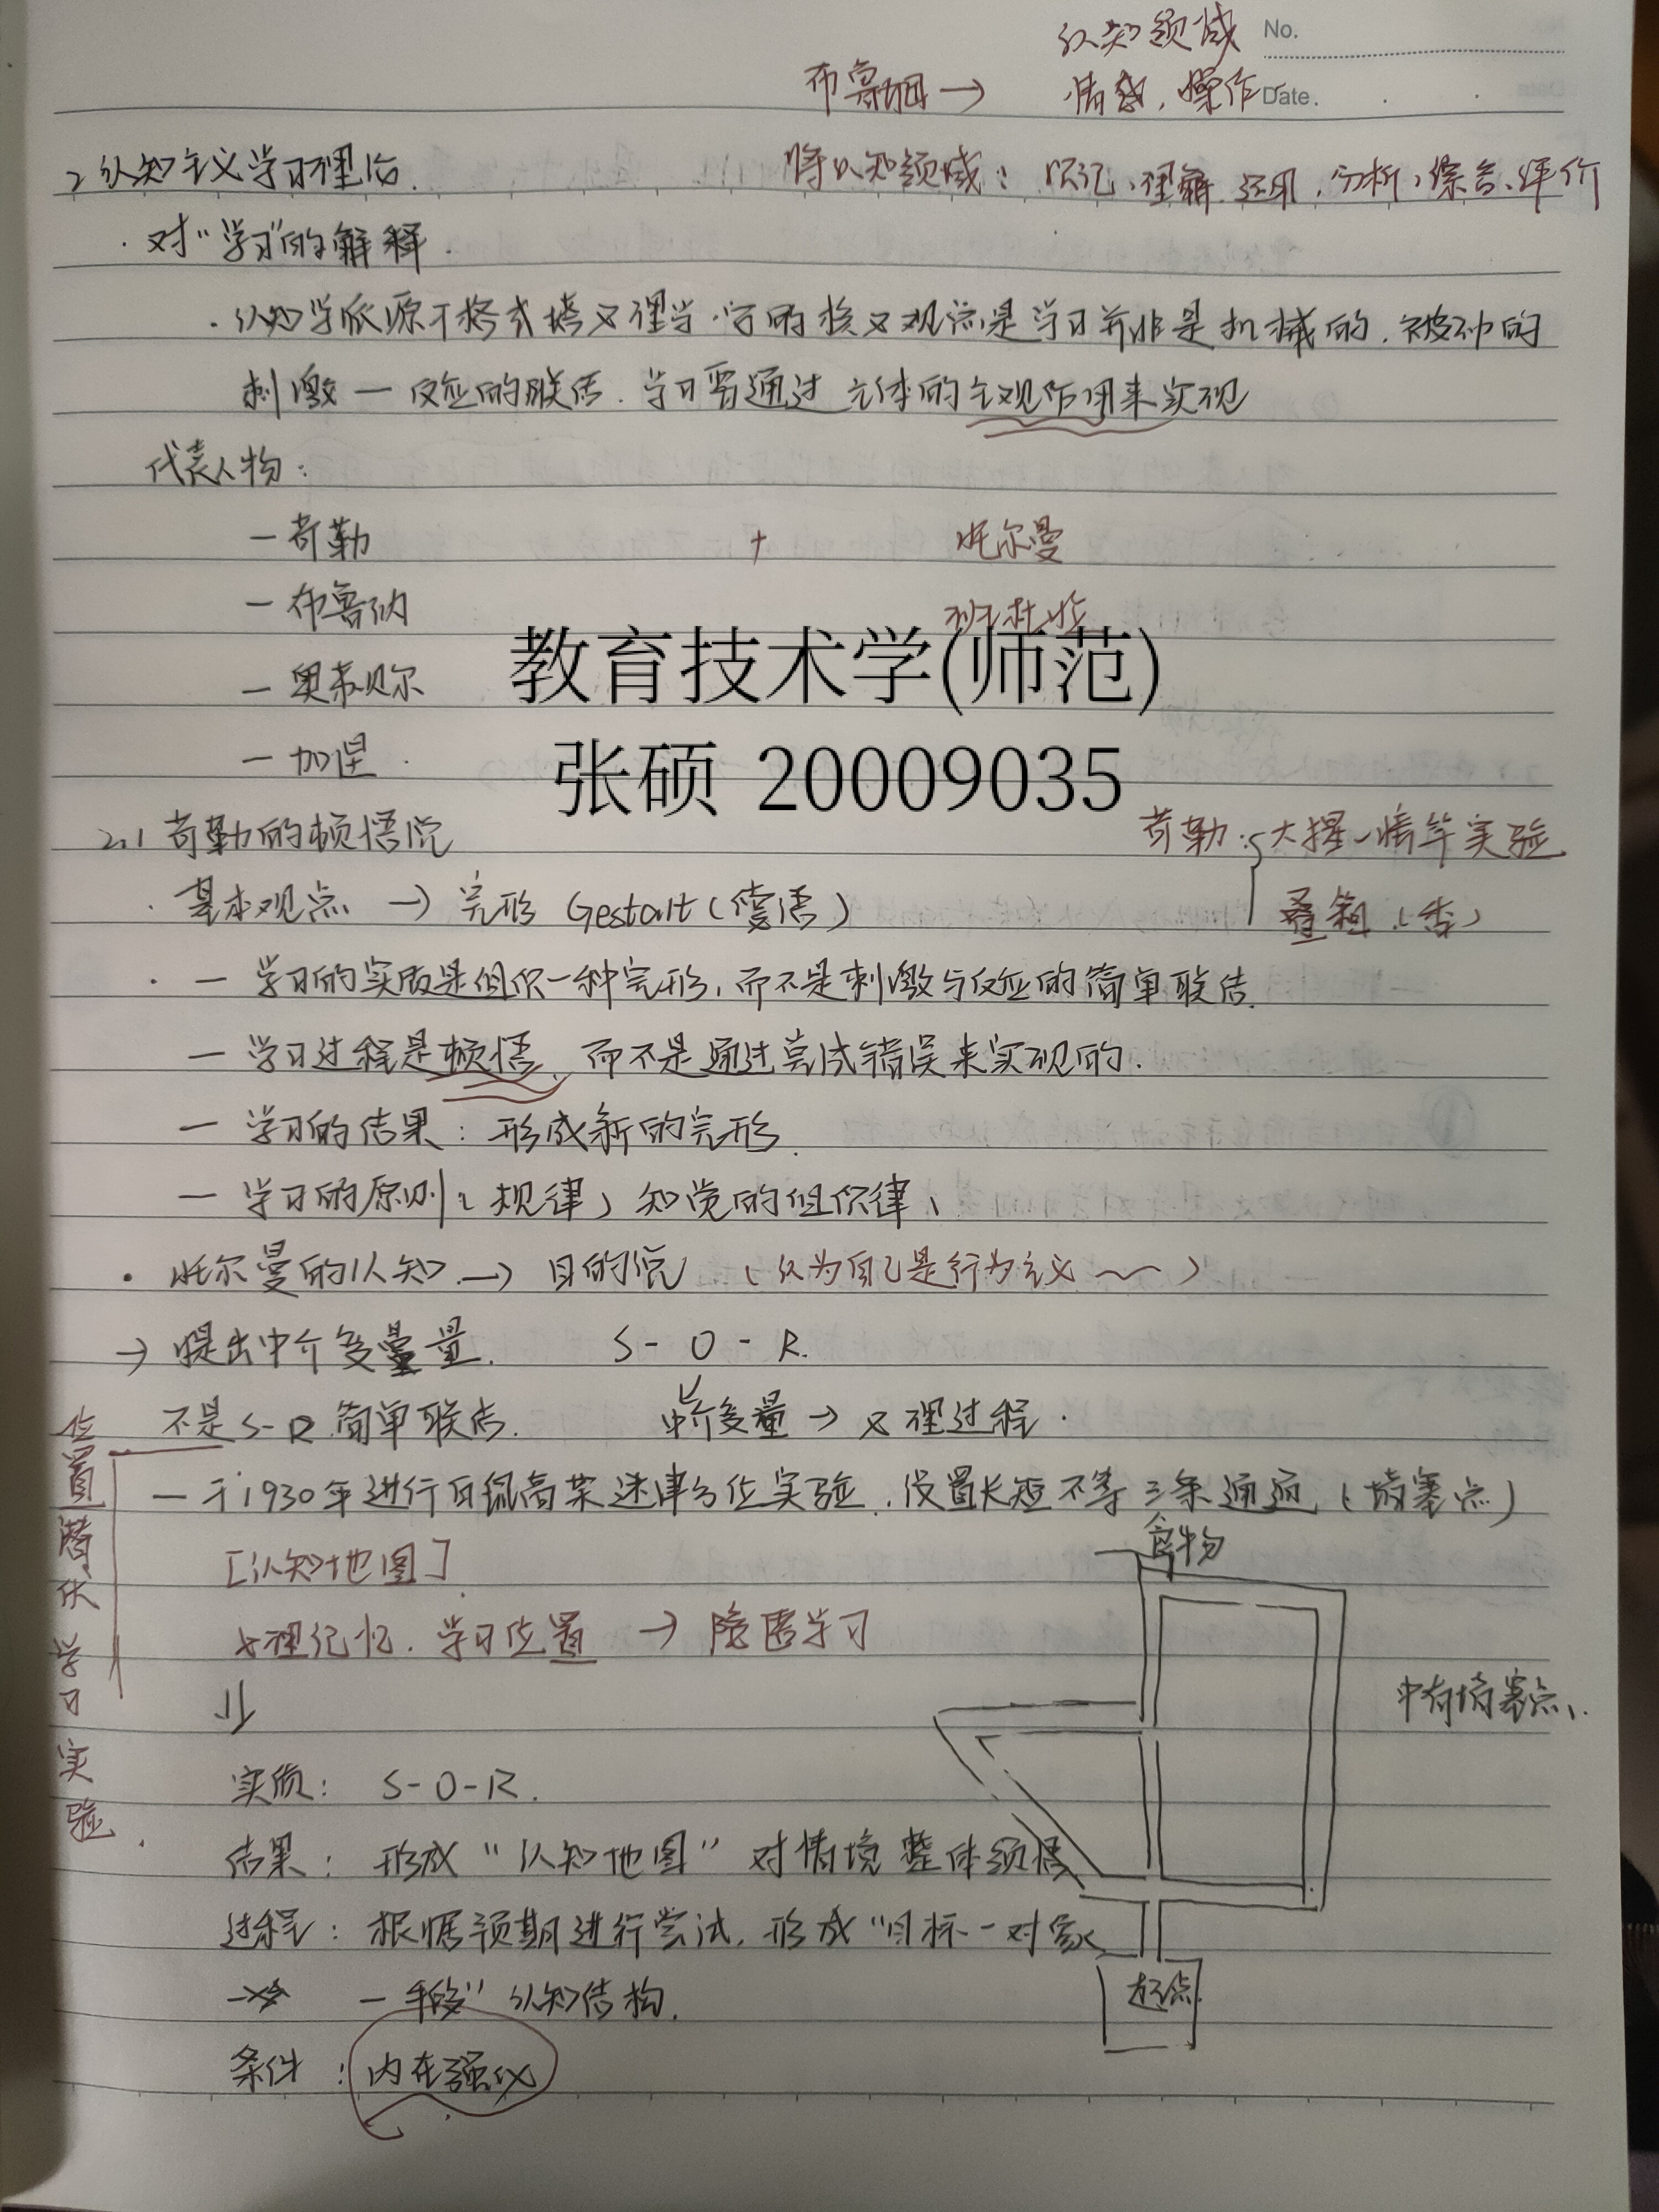 认知领域 No.
布鲁姆→ 情感、操作 Date.
2 认知主义学习理论.
将认知领域：识记、理解、运用、分析、综合、评价
·对“学习”的解释.
·认知学派源于格式塔心理学.它的核心观点是学习并非是机械的.被动的
刺激一反应的联结.学习要通过主体的主观作用来实现
代表人物：
一 苛勒 + 托尔曼
一 布鲁纳 班杜拉
一 奥苏贝尔
教育技术学(师范)
一 加涅.
张硕 20009035
2.1 苛勒的顿悟说
苛勒：大猩猩实验
·基本观点 → 完形 Gestalt(德语)
叠箱(香)
·一 学习的实质是组织一种完形,而不是刺激与反应的简单联结.
一 学习过程是顿悟,而不是通过尝试错误来实现的.
一 学习的结果：形成新的完形.
一 学习的原则(规律)知觉的组织律、
·托尔曼的认知→ 目的说 (认为自己是行为主义~~)
→ 提出中介变量. S-O-R.
不是S-R 简单联结. 中介变量 → 心理过程.
位置潜伏学习实验.
一 于1930年进行白鼠高架迷津方位实验.设置长短不等三条通道(堵塞点)
食物
[认知地图].
心理记忆.学习位置 → 隐匿学习
中有堵塞点、
实质： S-O-R.
结果：形成“认知地图”对情境整体领悟
过程：根据预期进行尝试,形成“目标一对象
一手段”认知结构.
起点
条件：内在强化